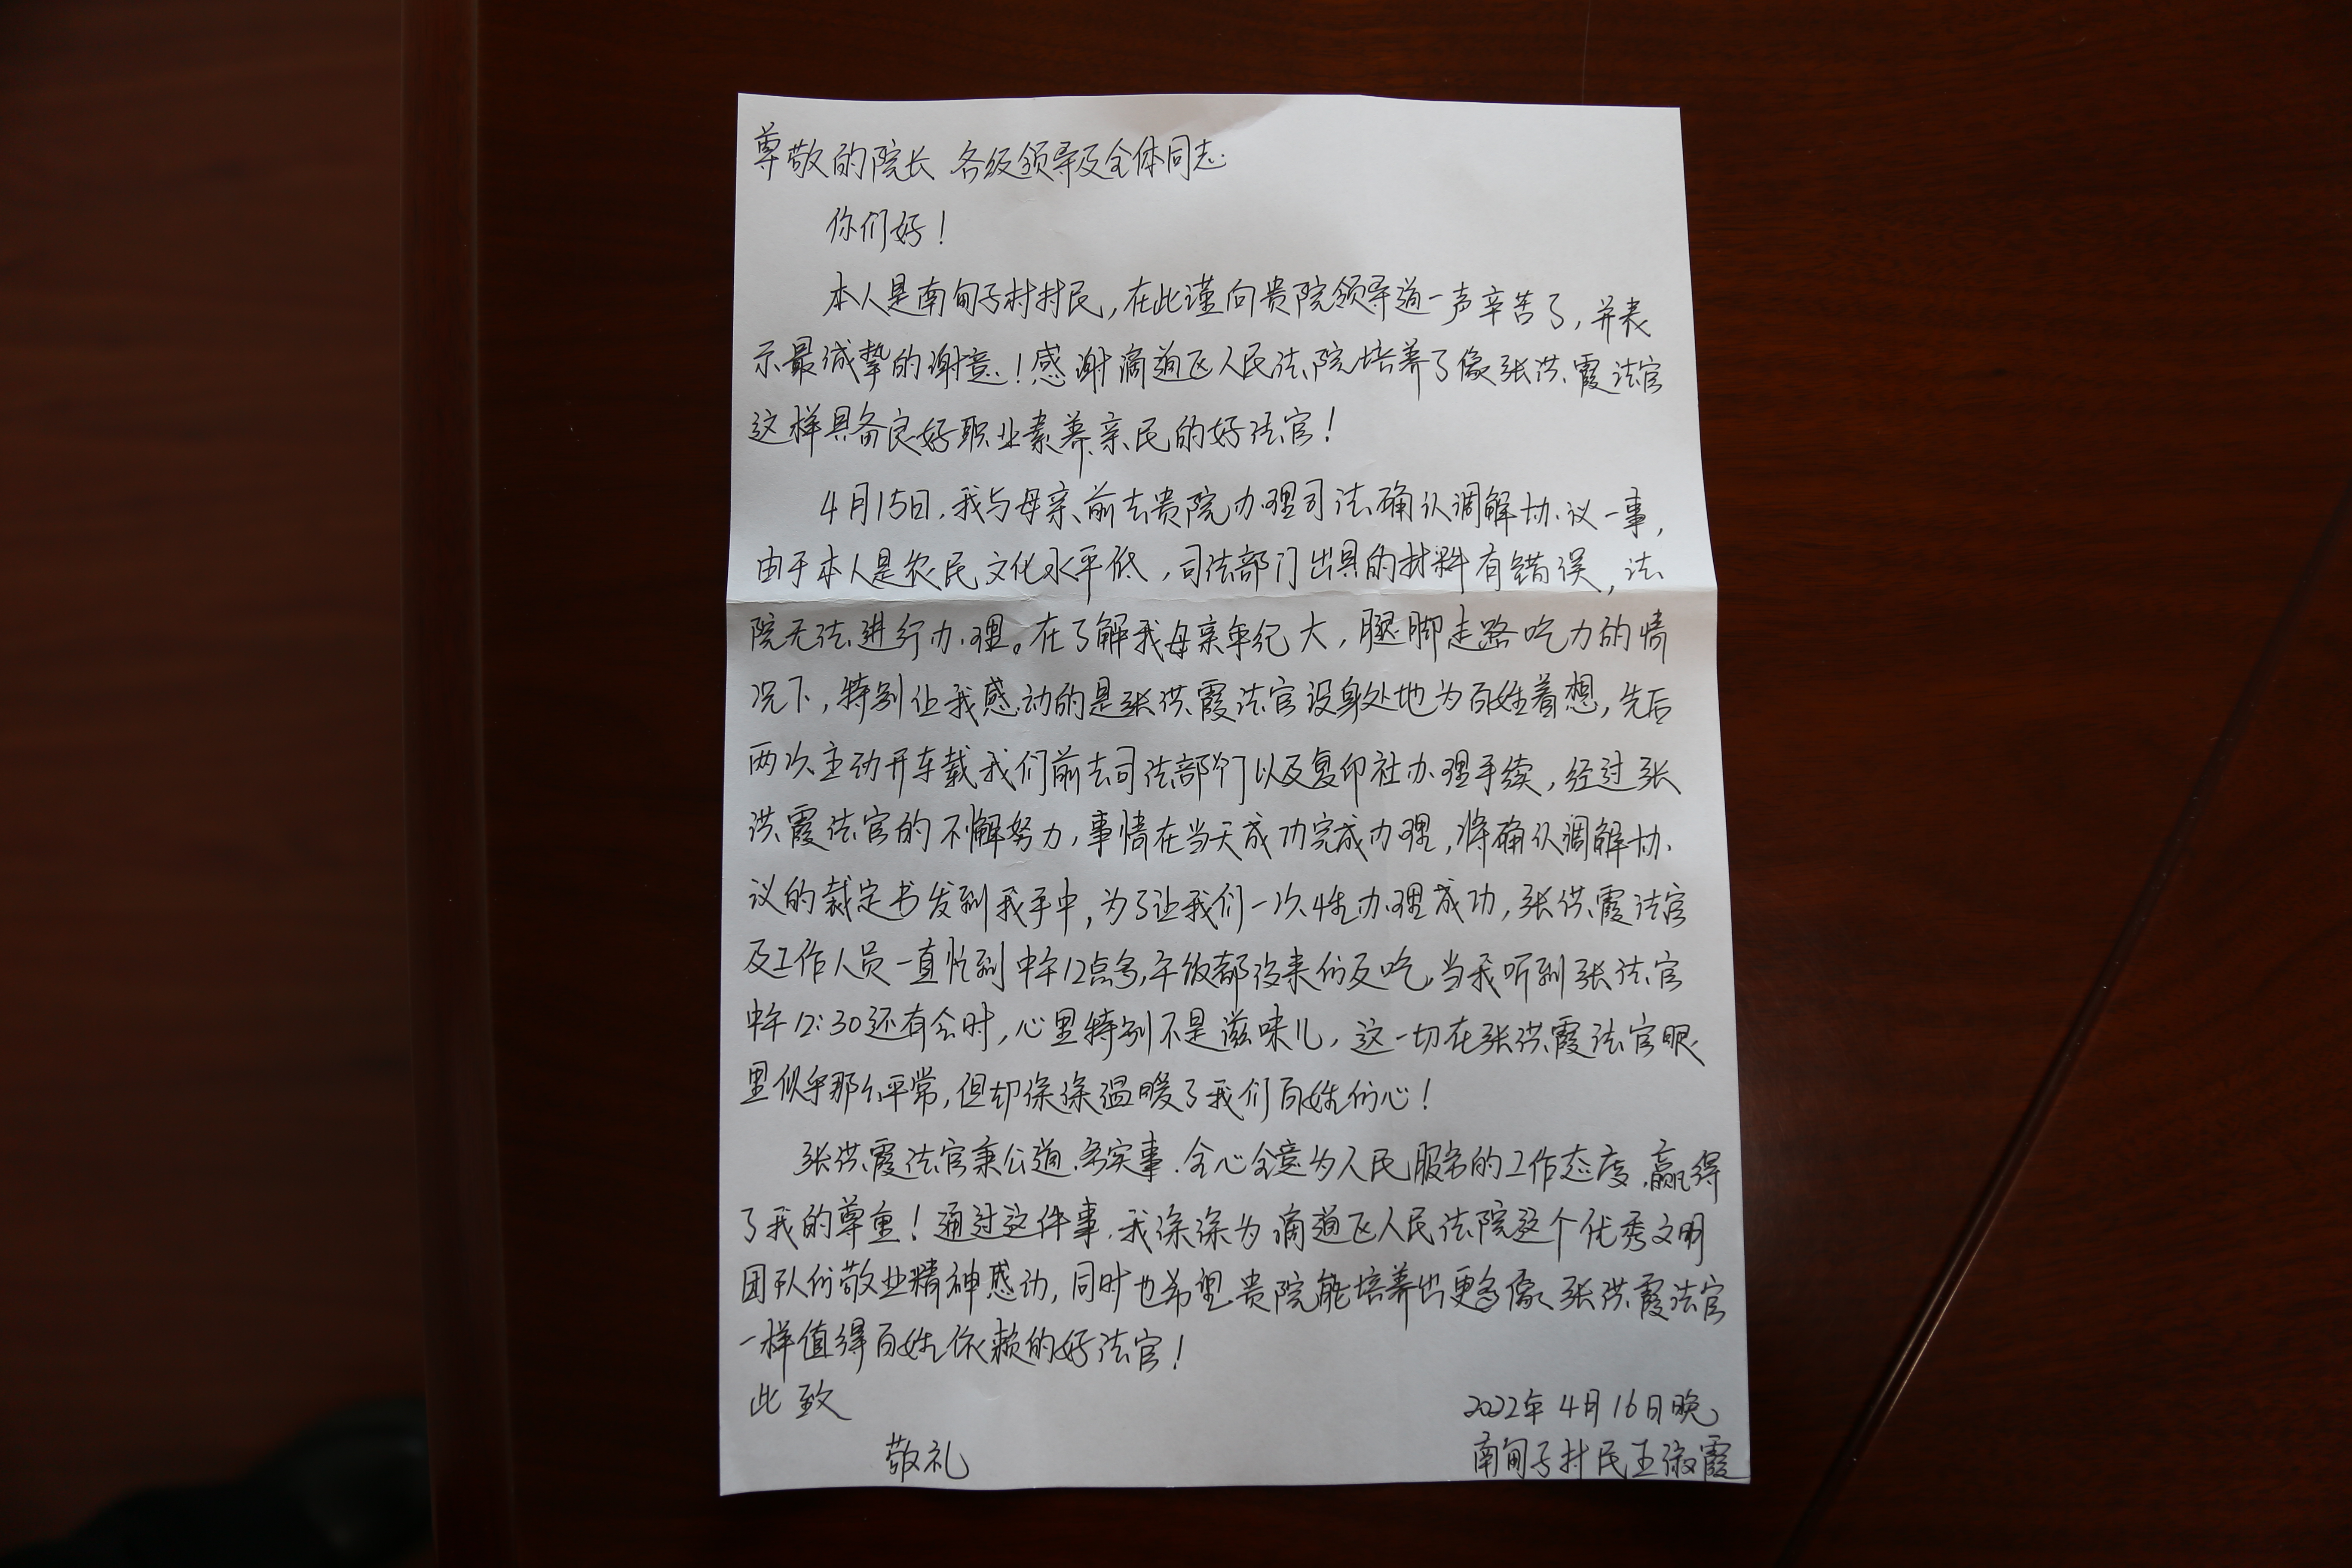 尊敬的院长 各级领导及全体同志
你们好!
本人是南甸子村村民,在此谨向贵院领导道一声辛苦了,并表
示最诚挚的谢意!感谢滴道区人民法院培养了像张洪霞法官
这样具备良好职业素养、亲民的好法官!
4月15日,我与母亲前去贵院办理司法确认调解协议一事,
由于本人是农民文化水平低,司法部门出具的材料有错误,法
院无法进行办理。在了解我母亲年纪大,腿脚走路吃力的情
况下,特别让我感动的是张洪霞法官设身处地为百姓着想,先后
两次主动开车载我们前去司法部门以及复印社办理手续,经过张
洪霞法官的不懈努力,事情在当天成功完成办理,将确认调解协
议的裁定书发到我手中,为了让我们一次性办理成功,张洪霞法官
及工作人员一直忙到中午12点多,午饭都没来的及吃,当我听到张法官
中午12:30还有会时,心里特别不是滋味儿,这一切在张洪霞法官眼
里似乎那么平常,但却深深温暖了我们百姓的心!
张洪霞法官秉公道、务实事、全心全意为人民服务的工作态度,赢得
了我的尊重!通过这件事,我深深为滴道区人民法院这个优秀文明
团队的敬业精神感动,同时也希望贵院能培养出更多像张洪霞法官
一样值得百姓依赖的好法官!
此致
敬礼
2022年4月16日晚
南甸子村民王淑霞